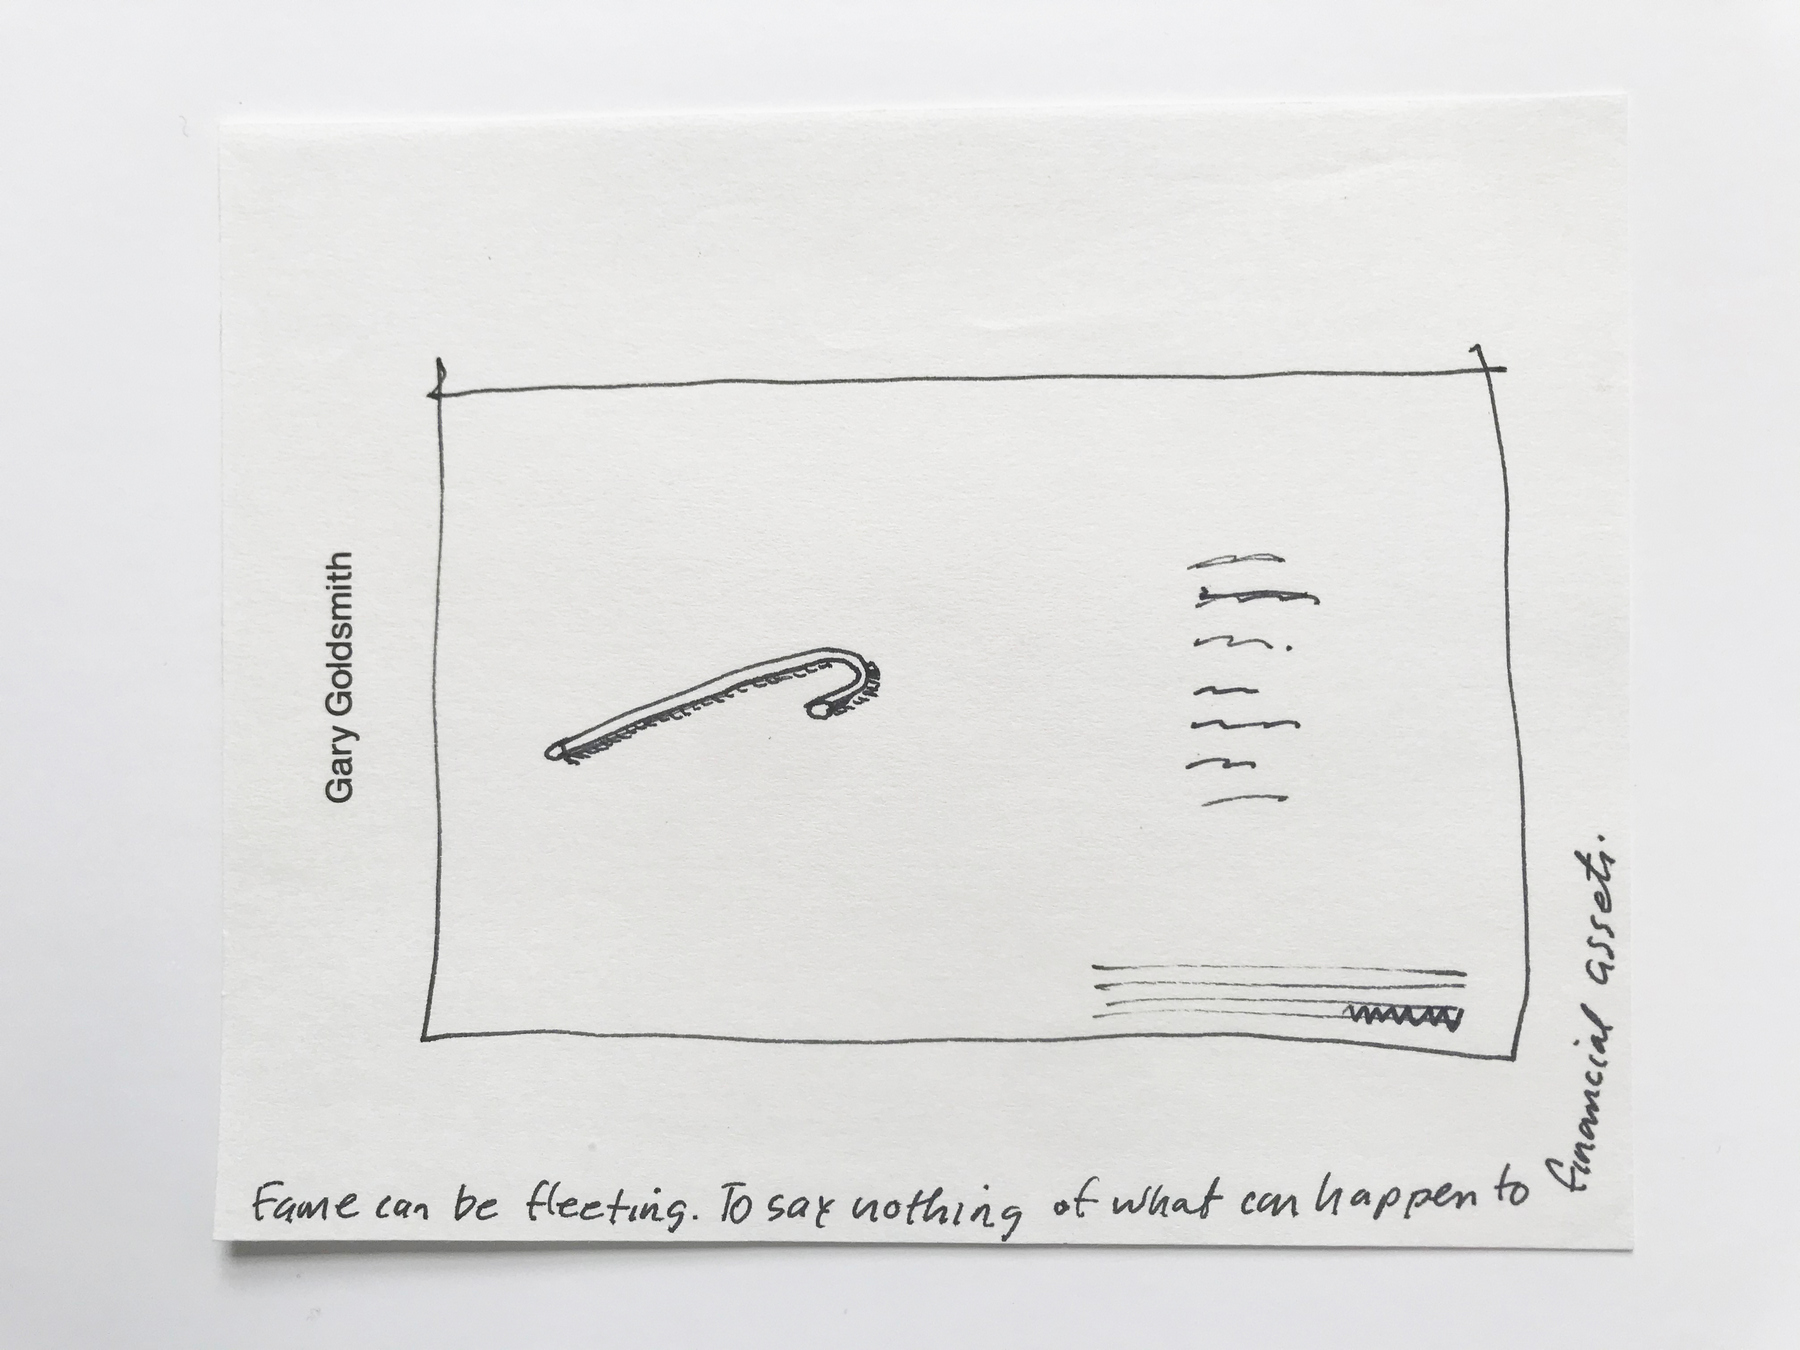 Gary Goldsmith
Fame can be fleeting. To say nothing of what can happen to
financial assets.